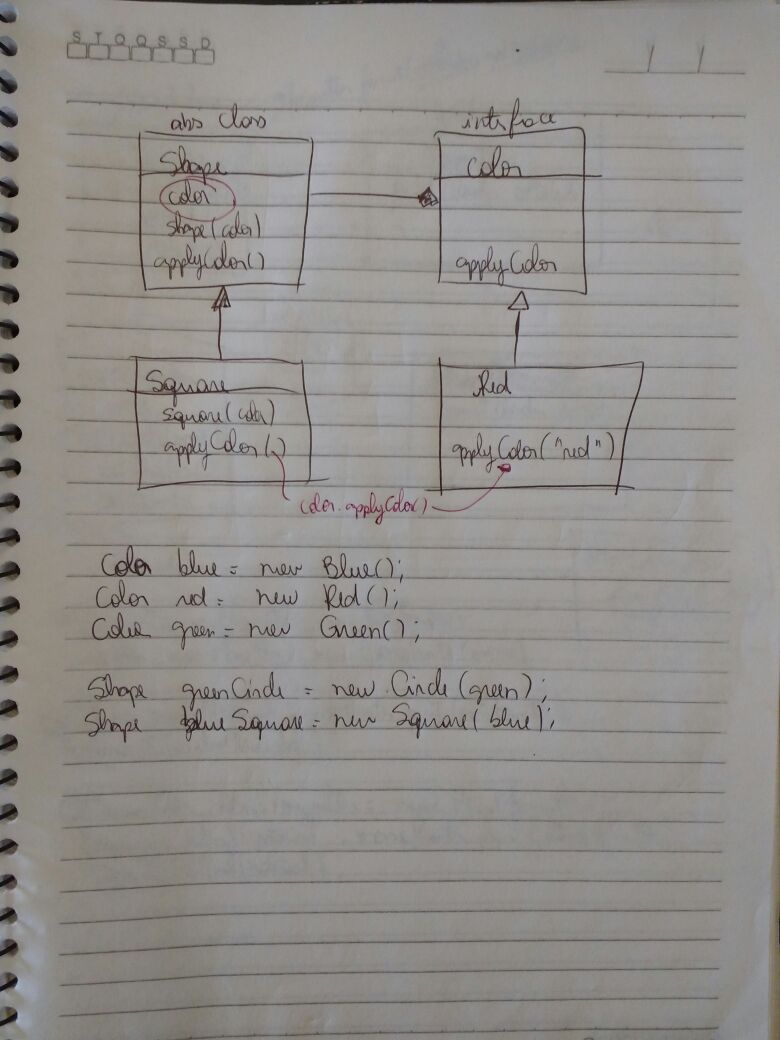 S T Q Q S S D
/ /
abs class
interface
Shape
color
shape(color)
applyColor()
Color
applyColor
Square
square(color)
applyColor()
Red
applyColor("red")
color.applyColor()
Color blue = new Blue();
Color red = new Red();
Color green = new Green();
Shape greenCircle = new Circle(green);
Shape blueSquare = new Square(blue);